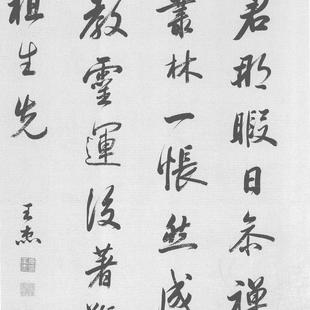 君那暇日参禅
叢林一悵然成
教靈運後著
祖生先
王杰